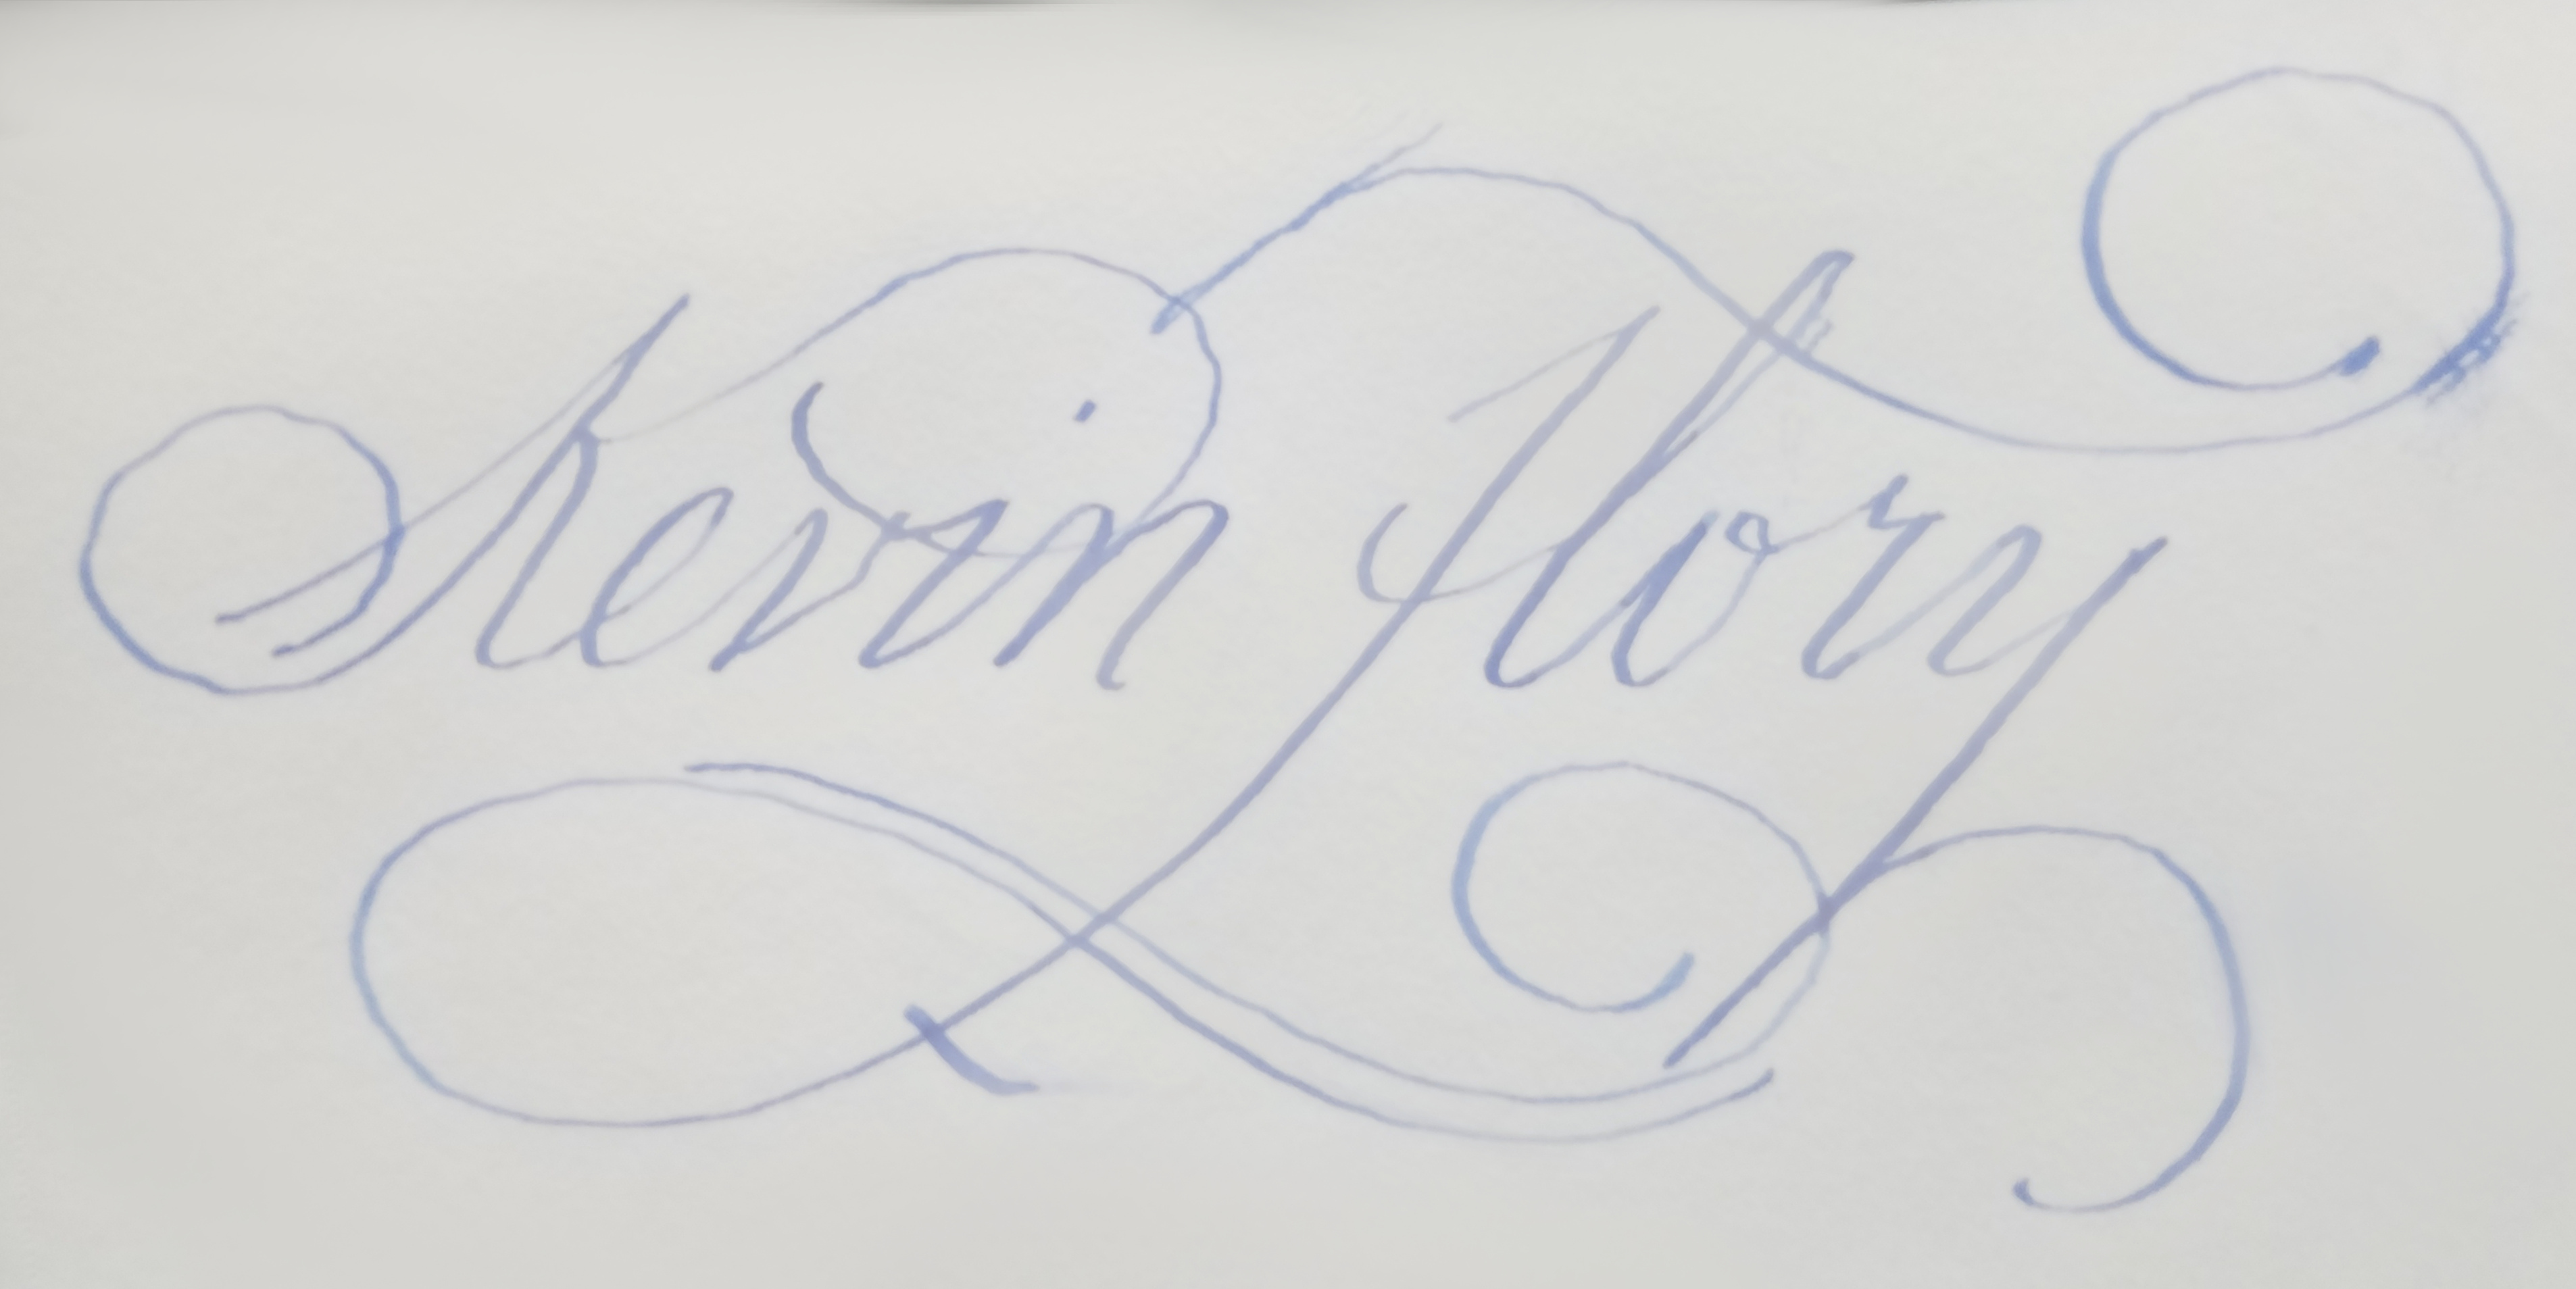 Kevin Flory